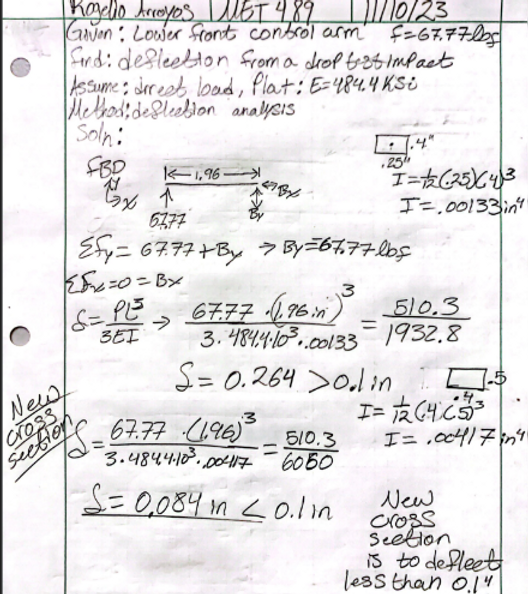 Rogelio Arroyos | MET 489 | 11/10/23
Given: Lower front control arm f=67.77lbf
find: deflection from a drop test impact
Assume: direct load, Plat: E=484.4 KSi
Method: deflection analysis
Soln:
.4"
.25"
I=1/12(.25)(.4)³
I=.00133in⁴
FBD
x
1.96
67.77
By
Bx
Σfy= 67.77+By → By=67.77lbf
Σfx=0=Bx
S=PL³/3EI → 67.77·(1.96in)³/3·484.4·10³·.00133 = 510.3/1932.8
S= 0.264 >0.1in
.5
.4
I=1/12(.4)(.5)³
I=.00417in⁴
New
cross
section
S=67.77·(1.96)³/3·484.4·10³·.00417=510.3/6050
S=0.084 in < 0.1in
New
cross
section
is to deflect
less than 0.1"